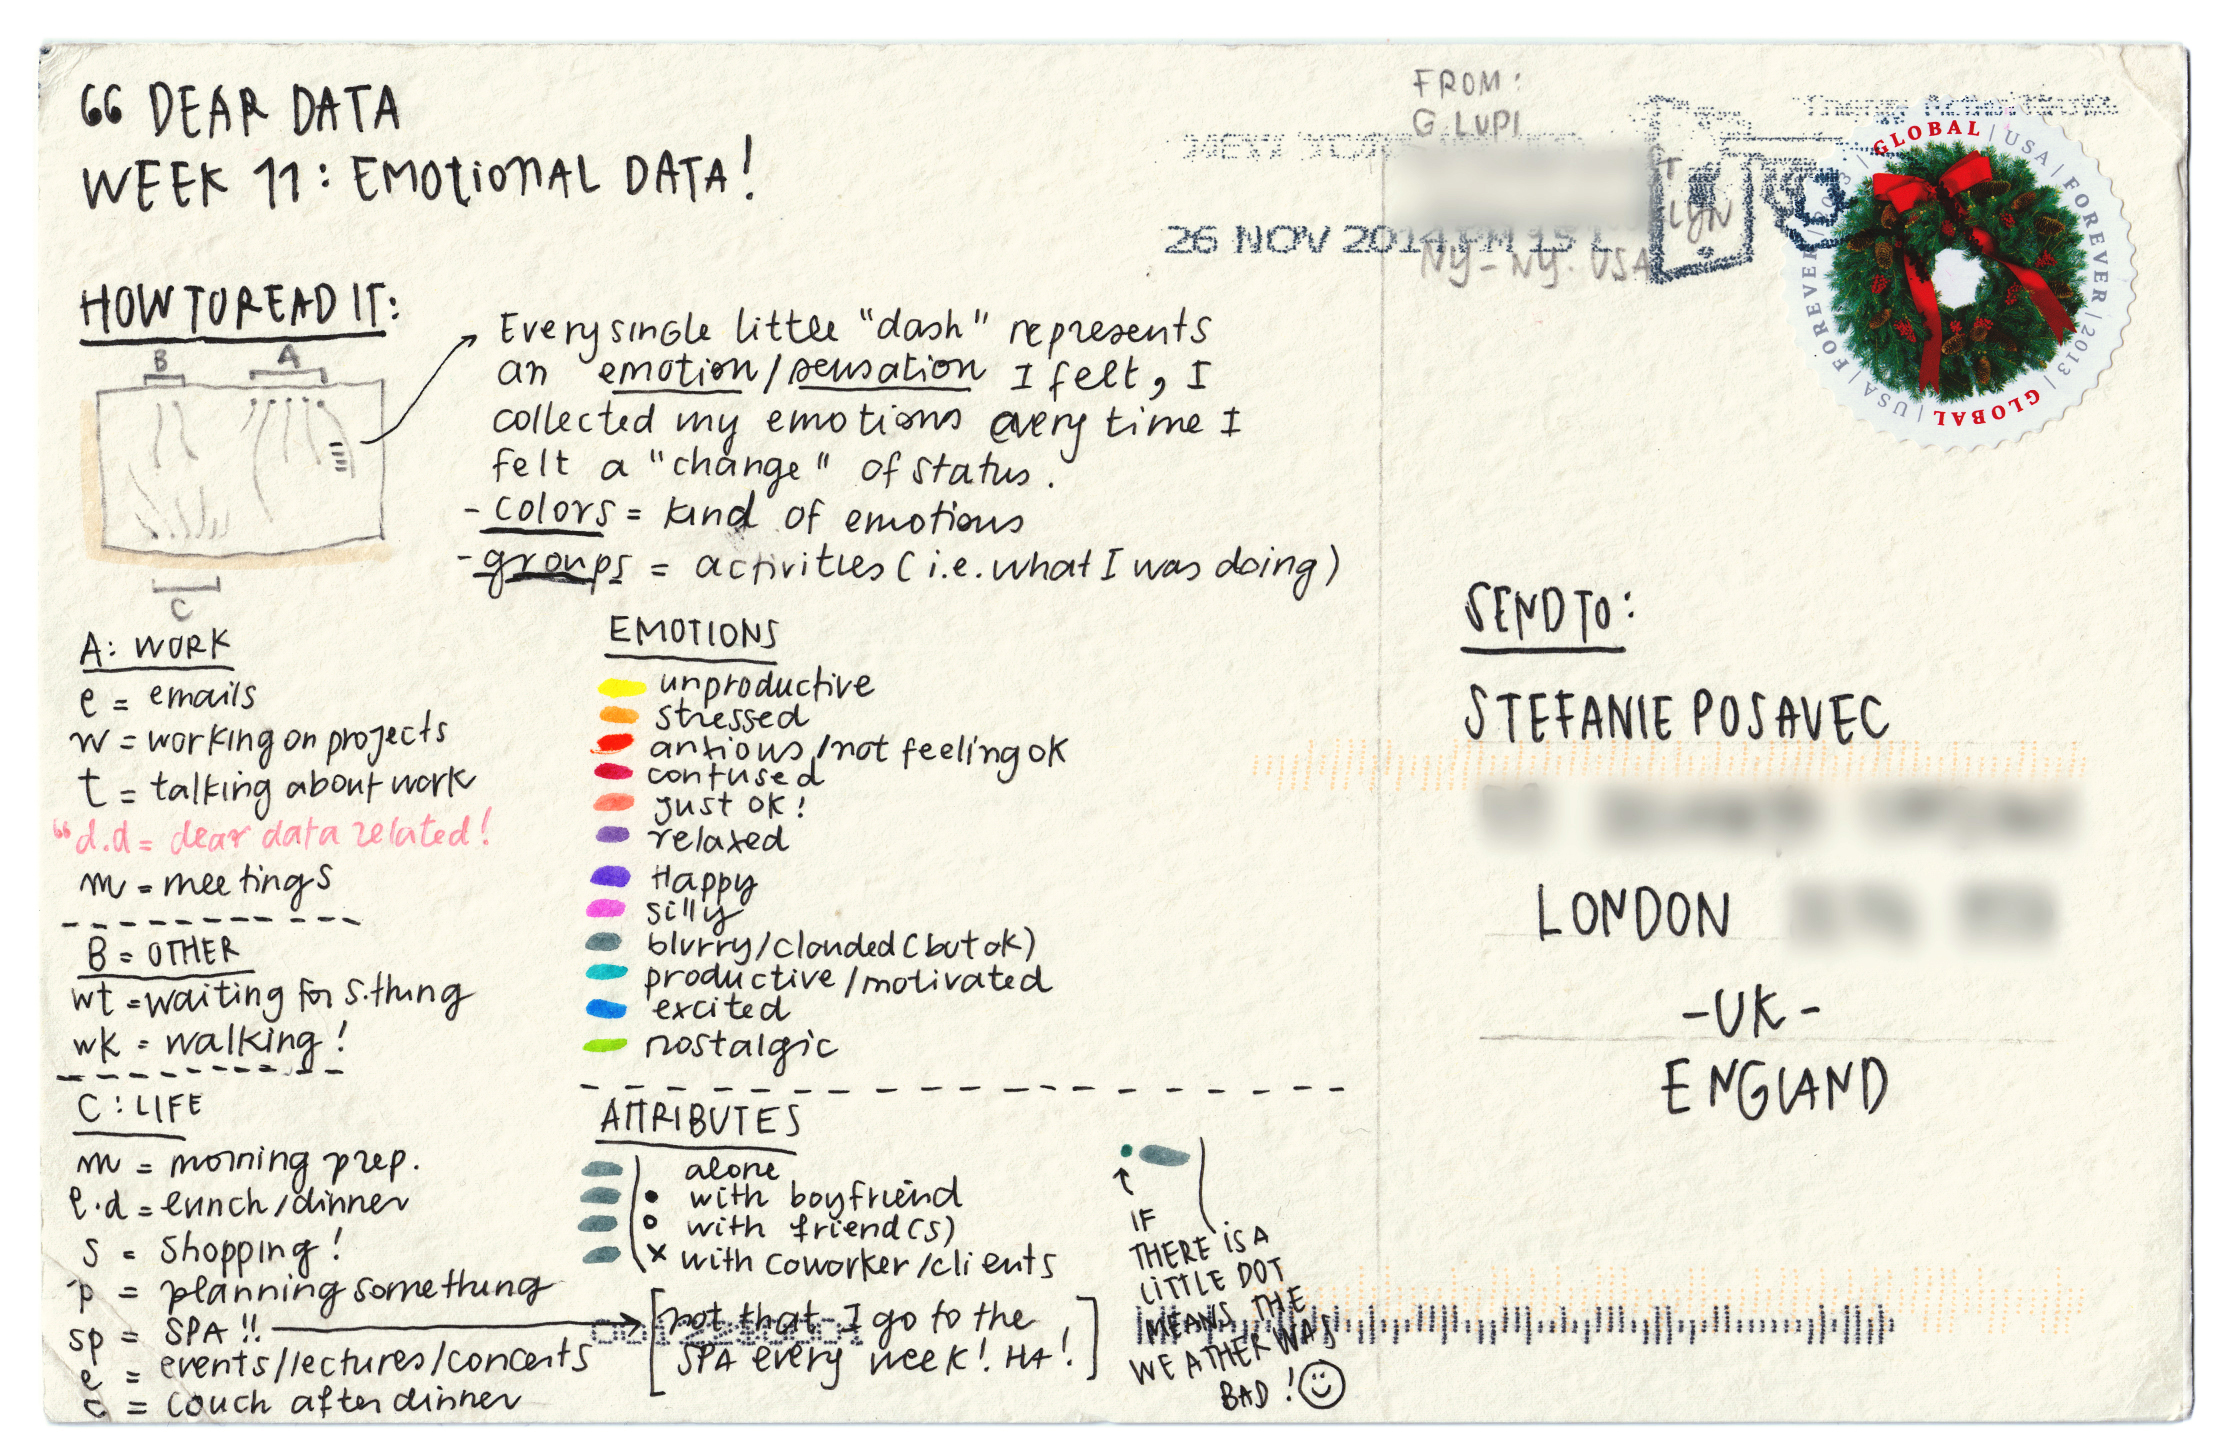 “ DEAR DATA
WEEK 11: EMOTIONAL DATA!
HOW TO READ IT:
B A
C
Every single little "dash" represents
an emotion/sensation I felt, I
collected my emotions every time I
felt a "change" of status.
- colors = kind of emotions
- groups = activities (i.e. what I was doing)
A: WORK
e = emails
w = working on projects
t = talking about work
“d.d = dear data related!
m = meetings
B = OTHER
wt = waiting for s.thing
wk = walking!
C: LIFE
m = morning prep.
l.d = lunch/dinner
s = shopping!
p = planning something
sp = SPA!!
e = events/lectures/concerts
c = couch after dinner
EMOTIONS
unproductive
stressed
anxious/not feeling ok
confused
just ok!
relaxed
Happy
silly
blurry/clouded (but ok)
productive/motivated
excited
nostalgic
ATTRIBUTES
alone
with boyfriend
with friend(s)
x with coworker/clients
[not that I go to the
SPA every week! HA!]
IF
THERE IS A
LITTLE DOT
MEANS THE
WEATHER WAS
BAD!
FROM:
G. LUPI
LYN
NY - NY. USA
26 NOV 2014 PM 15 L
GLOBAL | USA | FOREVER | 2013 | GLOBAL | USA | FOREVER | 2013 |
SEND TO:
STEFANIE POSAVEC
LONDON
- UK -
ENGLAND